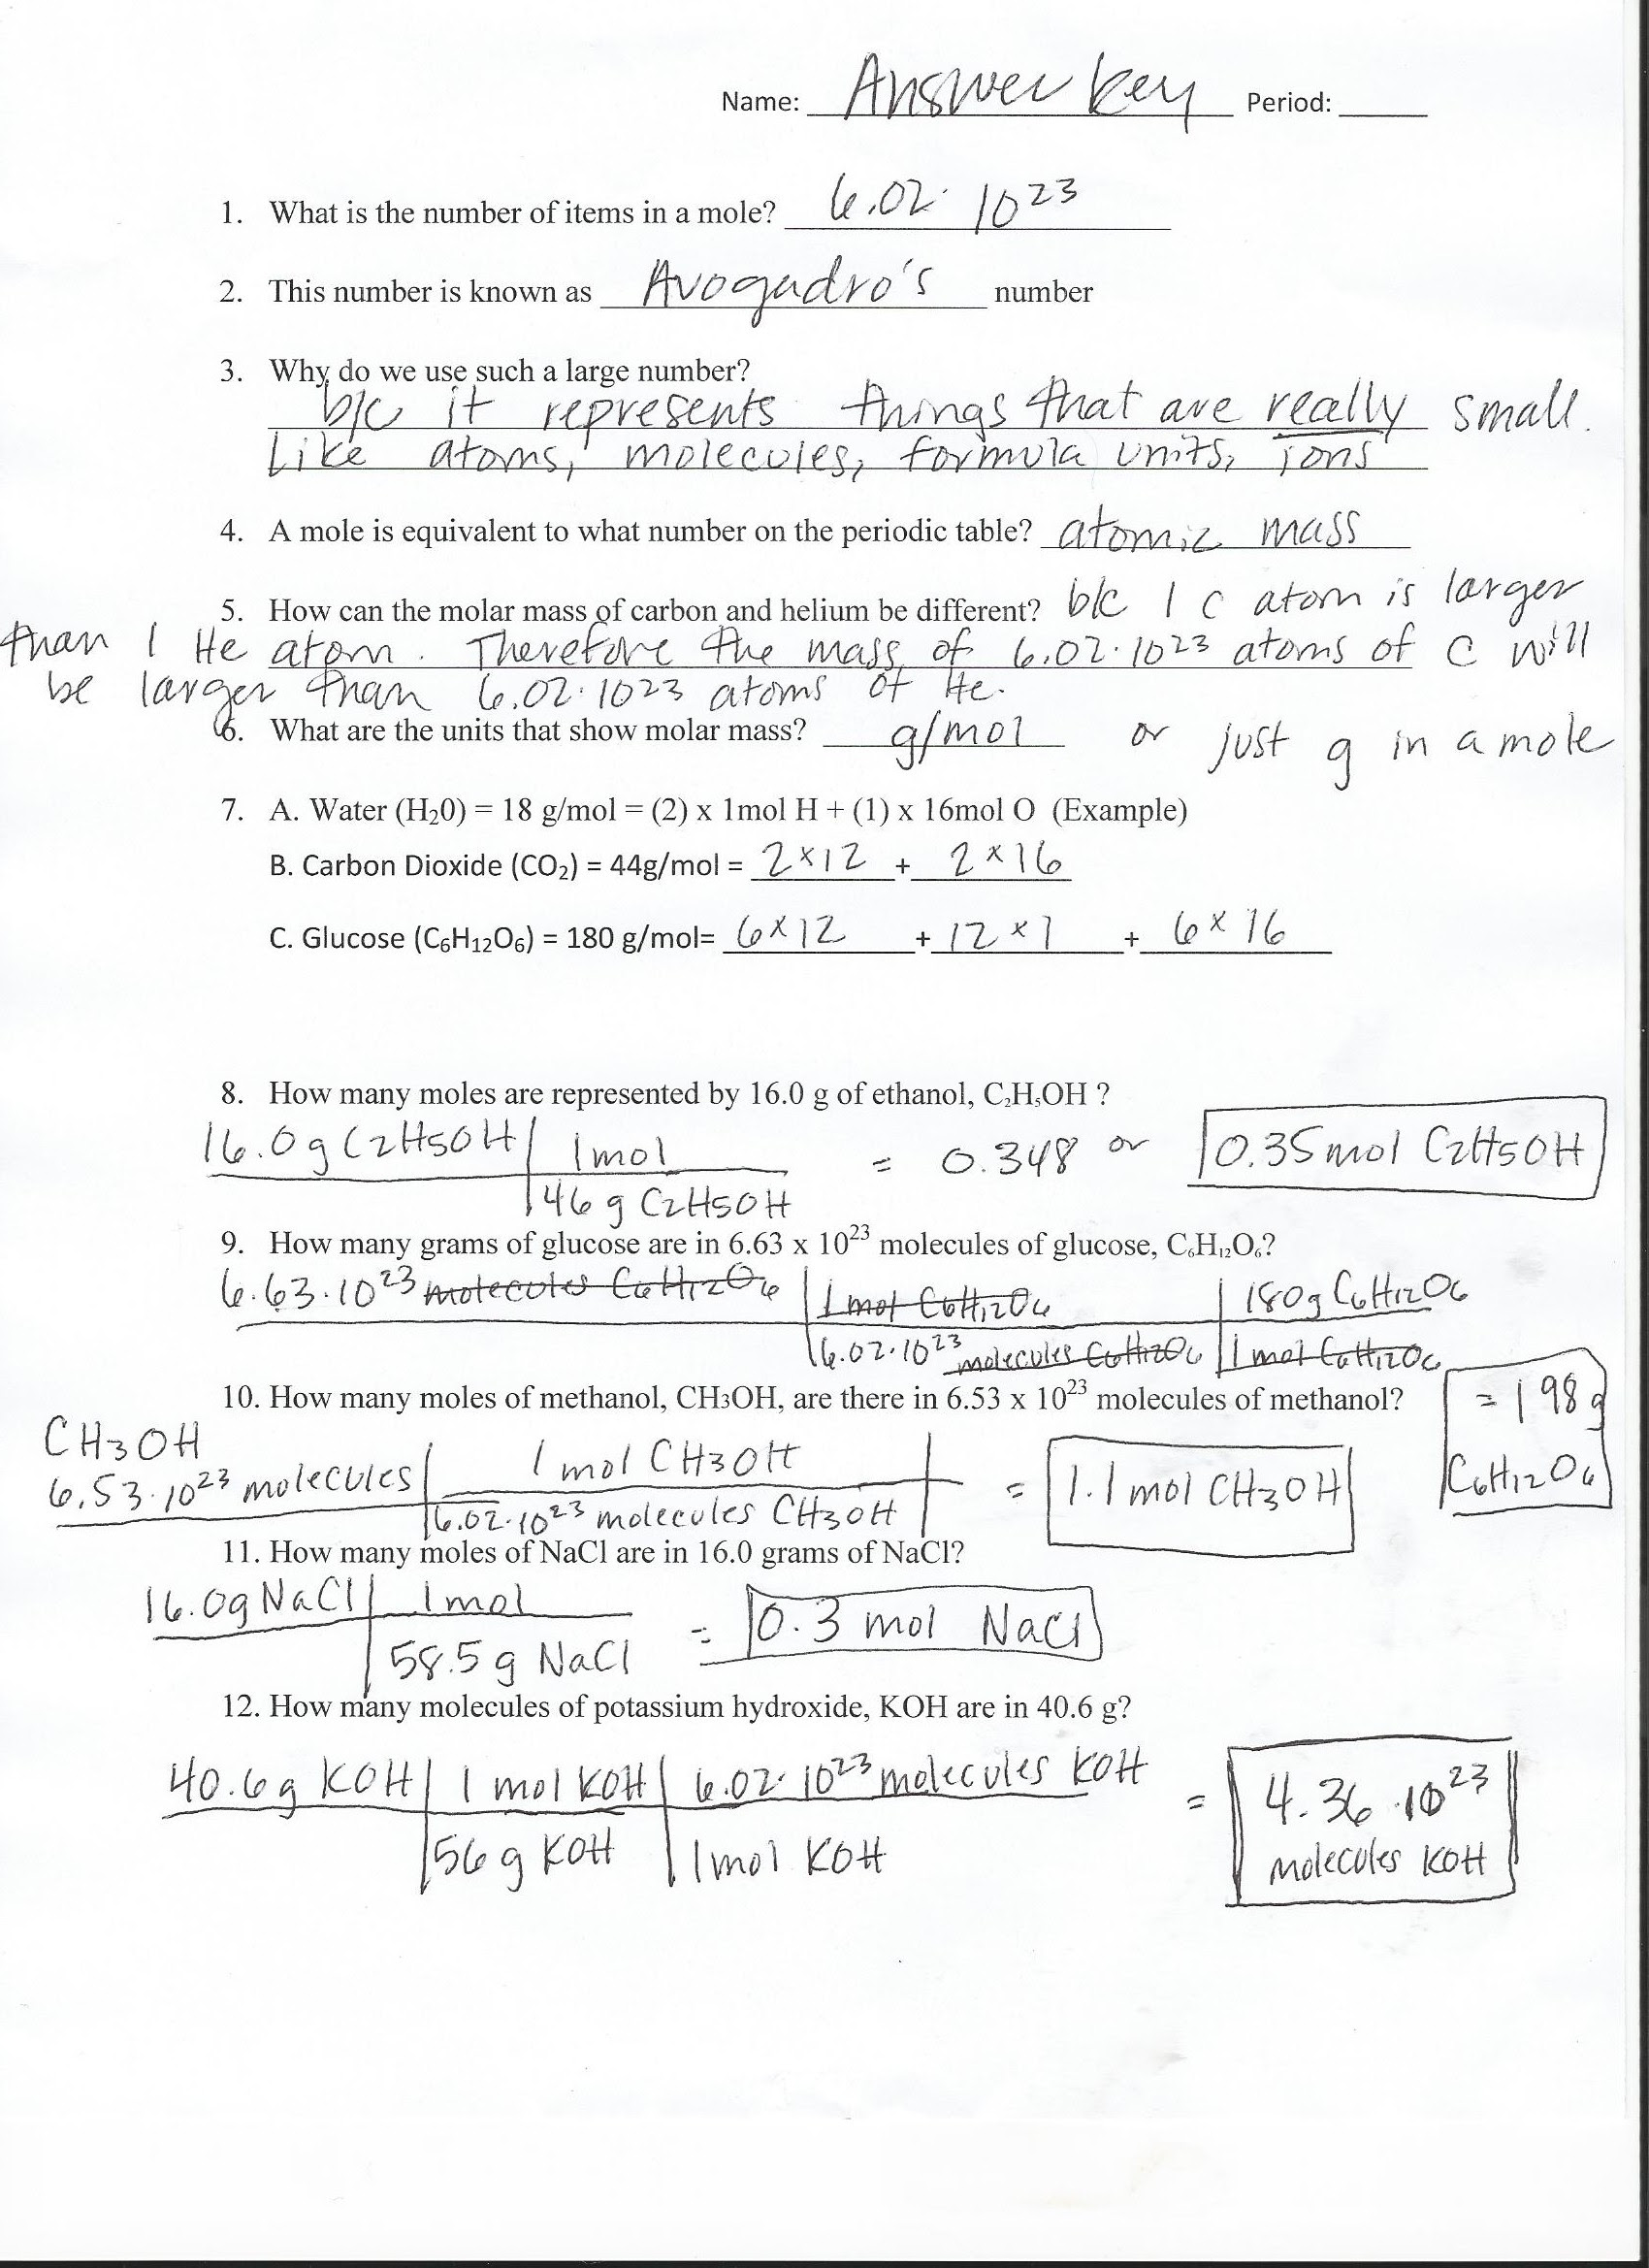 Name: Answer key Period:
1. What is the number of items in a mole? 6.02· 10²³
2. This number is known as Avogadro's number
3. Why do we use such a large number?
b/c it represents things that are really small.
Like atoms, molecules, formula units, ions
4. A mole is equivalent to what number on the periodic table? atomic mass
5. How can the molar mass of carbon and helium be different? b/c 1 C atom is larger
than 1 He atom. Therefore the mass of 6.02·10²³ atoms of C will
be larger than 6.02·10²³ atoms of He.
6. What are the units that show molar mass? g/mol or just g in a mole
7. A. Water (H₂0) = 18 g/mol = (2) x 1mol H + (1) x 16mol O (Example)
B. Carbon Dioxide (CO₂) = 44g/mol = 2×12 + 2×16
C. Glucose (C₆H₁₂O₆) = 180 g/mol= 6×12 + 12×1 + 6×16
8. How many moles are represented by 16.0 g of ethanol, C₂H₅OH ?
16.0g C2H5OH 1mol = 0.348 or 0.35mol C2H5OH
46 g C2H5OH
9. How many grams of glucose are in 6.63 x 10²³ molecules of glucose, C₆H₁₂O₆?
6.63·10²³ molecules C6H12O6 1 mol C6H12O6 180g C6H12O6
6.02·10²³ molecules C6H12O6 1 mol C6H12O6
10. How many moles of methanol, CH3OH, are there in 6.53 x 10²³ molecules of methanol? = 198g
C6H12O6
CH3OH
6.53·10²³ molecules 1 mol CH3OH = 1.1 mol CH3OH
6.02·10²³ molecules CH3OH
11. How many moles of NaCl are in 16.0 grams of NaCl?
16.0g NaCl 1mol = 0.3 mol NaCl
58.5 g NaCl
12. How many molecules of potassium hydroxide, KOH are in 40.6 g?
40.6g KOH 1 mol KOH 6.02·10²³ molecules KOH = 4.36·10²³
56 g KOH 1mol KOH molecules KOH